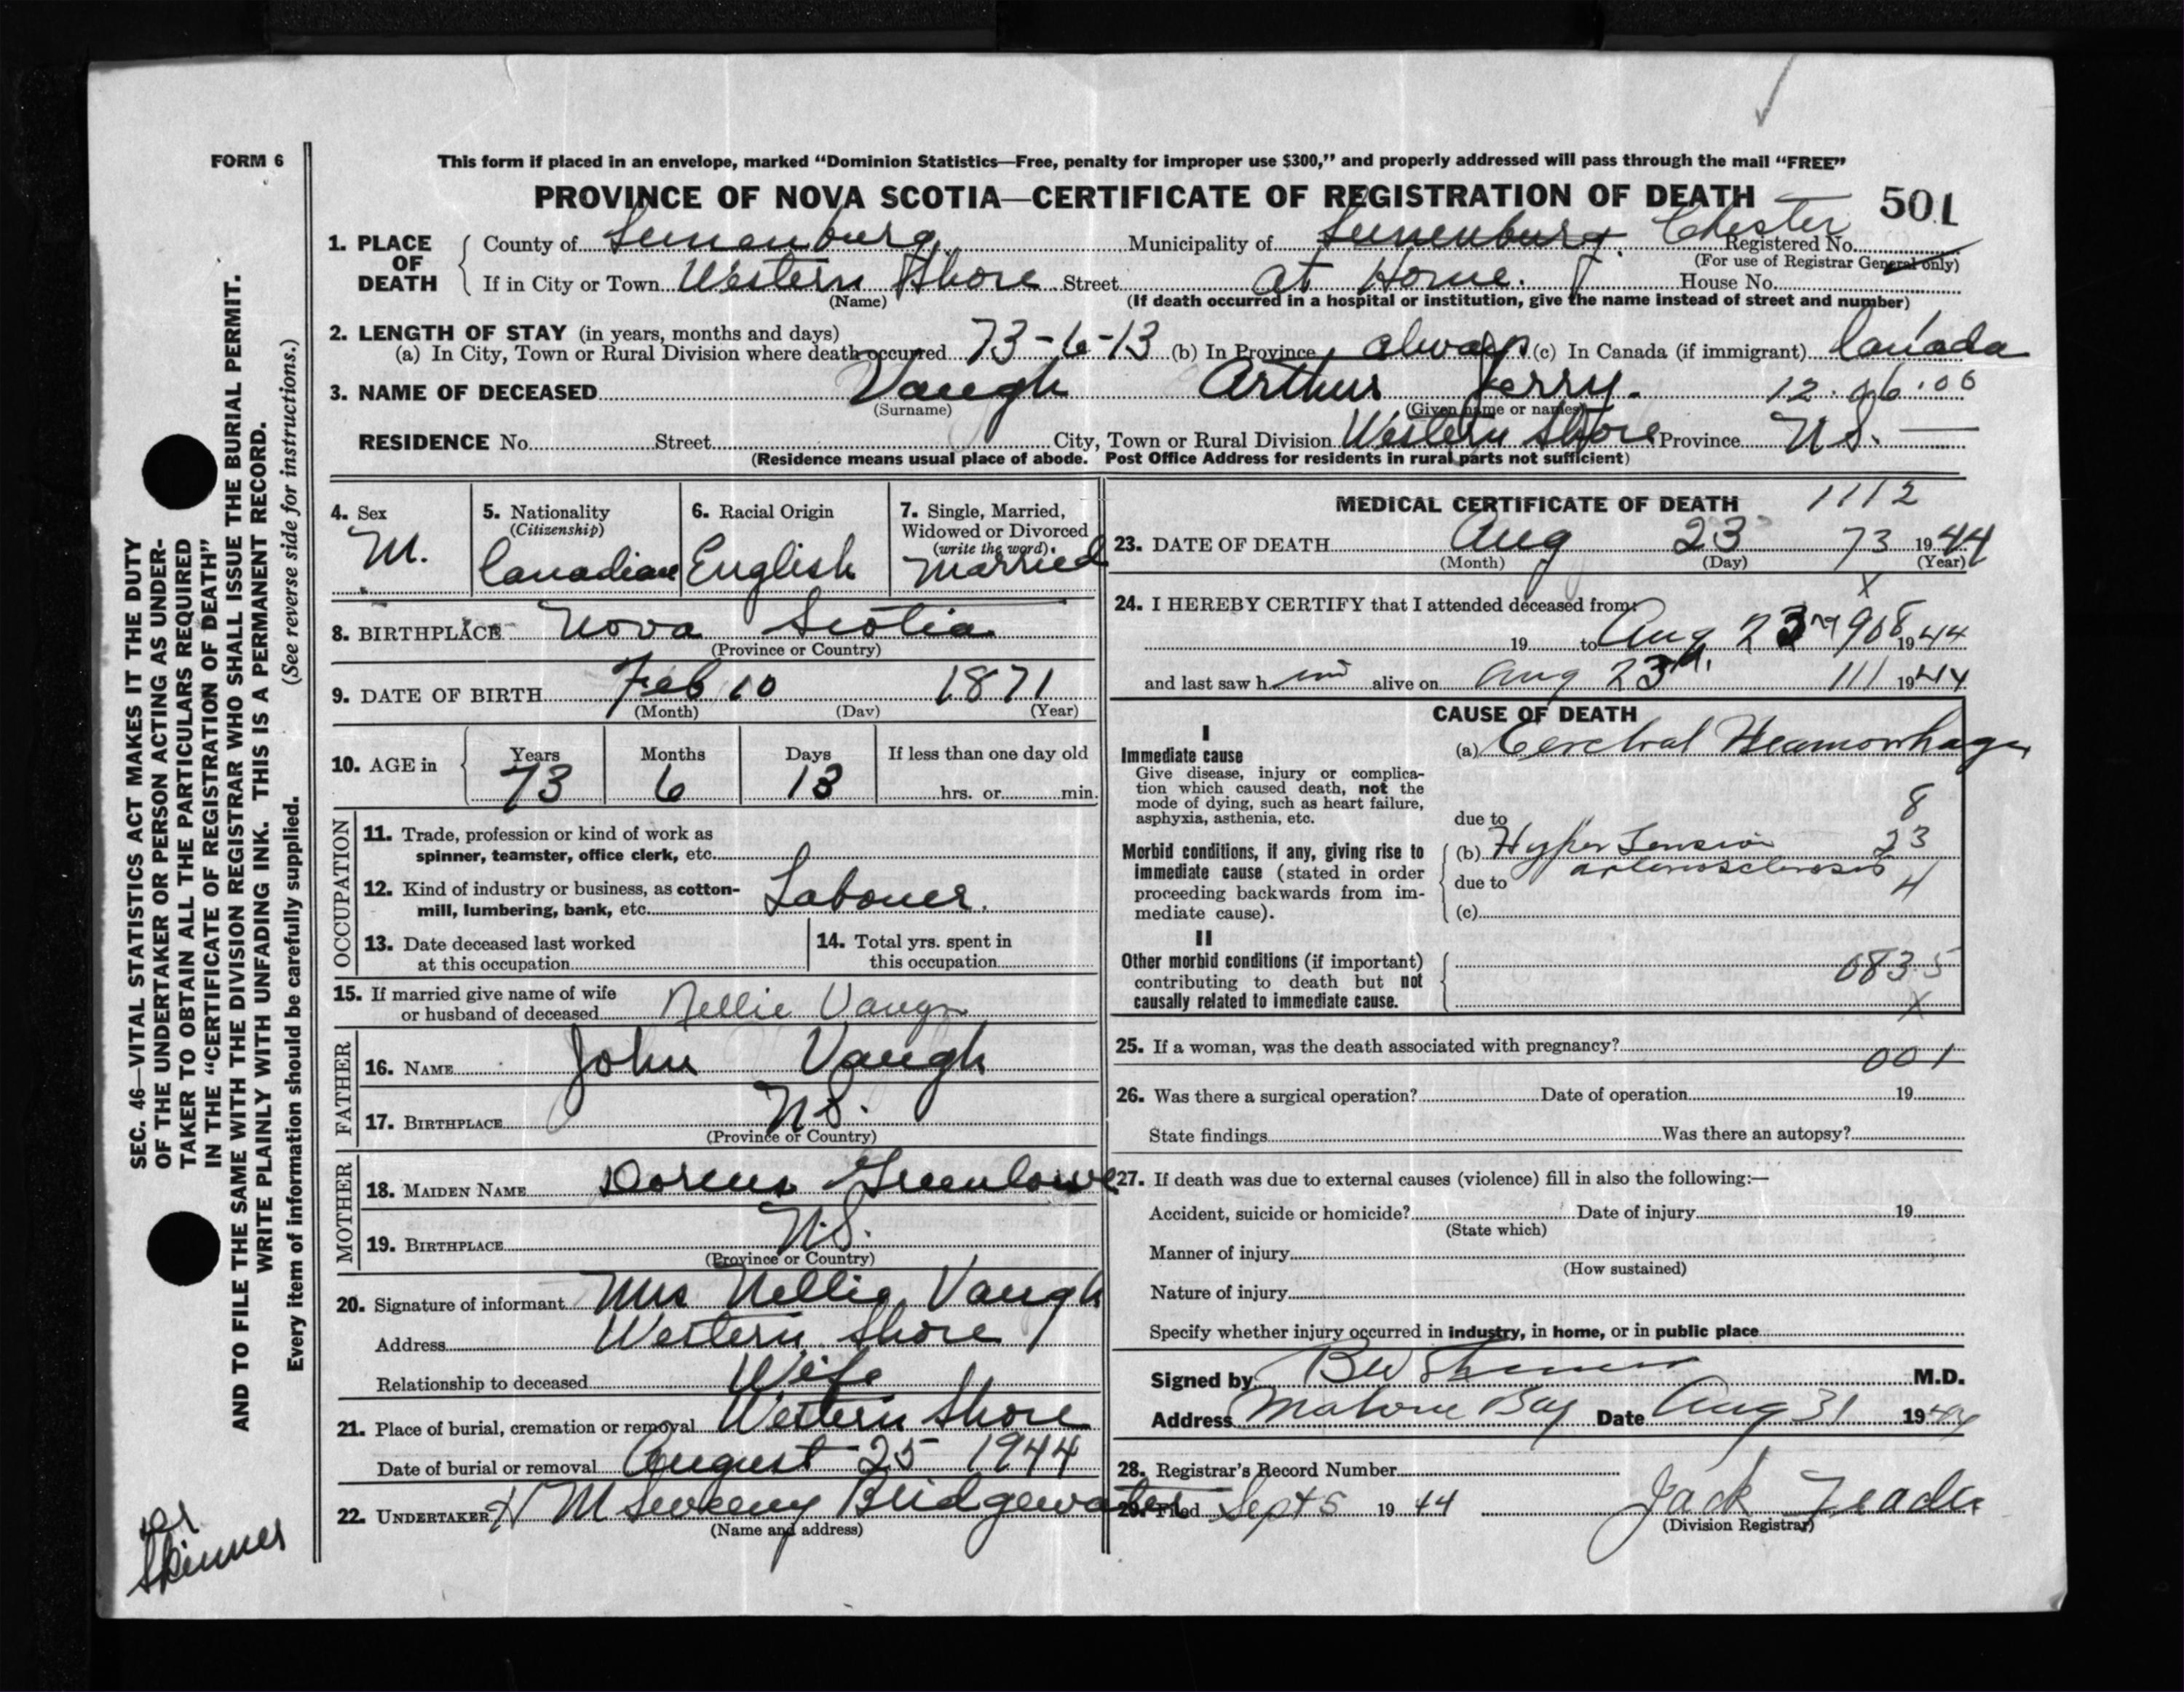 FORM 6
This form if placed in an envelope, marked “Dominion Statistics—Free, penalty for improper use $300,” and properly addressed will pass through the mail “FREE”
PROVINCE OF NOVA SCOTIA—CERTIFICATE OF REGISTRATION OF DEATH 501
1. PLACE OF DEATH
County of Lunenburg Municipality of Lunenburg Chester Registered No.
(For use of Registrar General only)
If in City or Town Western Shore Street at Home. House No.
(Name) (If death occurred in a hospital or institution, give the name instead of street and number)
2. LENGTH OF STAY (in years, months and days)
(a) In City, Town or Rural Division where death occurred 73-6-13 (b) In Province always (c) In Canada (if immigrant) Canada
3. NAME OF DECEASED Vaugh Arthur Jerry. 12.06.06
(Surname) (Given name or names)
RESIDENCE No. Street City, Town or Rural Division Western Shore Province N.S.
(Residence means usual place of abode. Post Office Address for residents in rural parts not sufficient)
4. Sex M.
5. Nationality (Citizenship) Canadian
6. Racial Origin English
7. Single, Married, Widowed or Divorced (write the word) Married
8. BIRTHPLACE Nova Scotia
(Province or Country)
9. DATE OF BIRTH Feb 10 1871
(Month) (Day) (Year)
10. AGE in Years 73 Months 6 Days 13 If less than one day old
hrs. or min.
OCCUPATION
11. Trade, profession or kind of work as
spinner, teamster, office clerk, etc.
12. Kind of industry or business, as cotton-
mill, lumbering, bank, etc. Labouer.
13. Date deceased last worked
at this occupation
14. Total yrs. spent in
this occupation
15. If married give name of wife
or husband of deceased Nellie Vaugn
FATHER
16. NAME John Vaugh
17. BIRTHPLACE N.S.
(Province or Country)
MOTHER
18. MAIDEN NAME Greenlowe
19. BIRTHPLACE N.S.
(Province or Country)
20. Signature of informant Mrs Nellie Vaugh
Address Western Shore
Relationship to deceased Wife
21. Place of burial, cremation or removal Western Shore
Date of burial or removal August 25 1944
22. UNDERTAKER H M Sweeny Bridgewater
(Name and address)
MEDICAL CERTIFICATE OF DEATH 1112
23. DATE OF DEATH Aug 23 73 1944
(Month) (Day) (Year)
X
24. I HEREBY CERTIFY that I attended deceased from:
19 to Aug 23 908 1944
and last saw h im alive on Aug 23 111 1944
CAUSE OF DEATH
I
Immediate cause
(a) Cerebral Heamorrhage
Give disease, injury or complica-
tion which caused death, not the
mode of dying, such as heart failure,
asphyxia, asthenia, etc.
due to 8
Morbid conditions, if any, giving rise to
immediate cause (stated in order
proceeding backwards from im-
mediate cause).
(b) Hyper Tension 23
due to arteriosclerosis 4
(c)
II
Other morbid conditions (if important)
contributing to death but not
causally related to immediate cause.
083.5
X
25. If a woman, was the death associated with pregnancy?
001
26. Was there a surgical operation? Date of operation 19
State findings Was there an autopsy?
27. If death was due to external causes (violence) fill in also the following:—
Accident, suicide or homicide? Date of injury 19
(State which)
Manner of injury
(How sustained)
Nature of injury
Specify whether injury occurred in industry, in home, or in public place
Signed by M.D.
Address Mahone Bay Date Aug 31 1944
28. Registrar’s Record Number
29. Filed Sept 5 1944 Jack
(Division Registrar)
SEC. 46—VITAL STATISTICS ACT MAKES IT THE DUTY
OF THE UNDERTAKER OR PERSON ACTING AS UNDER-
TAKER TO OBTAIN ALL THE PARTICULARS REQUIRED
IN THE “CERTIFICATE OF REGISTRATION OF DEATH”
AND TO FILE THE SAME WITH THE DIVISION REGISTRAR WHO SHALL ISSUE THE BURIAL PERMIT.
WRITE PLAINLY WITH UNFADING INK. THIS IS A PERMANENT RECORD.
Every item of information should be carefully supplied. (See reverse side for instructions.)
Skinner